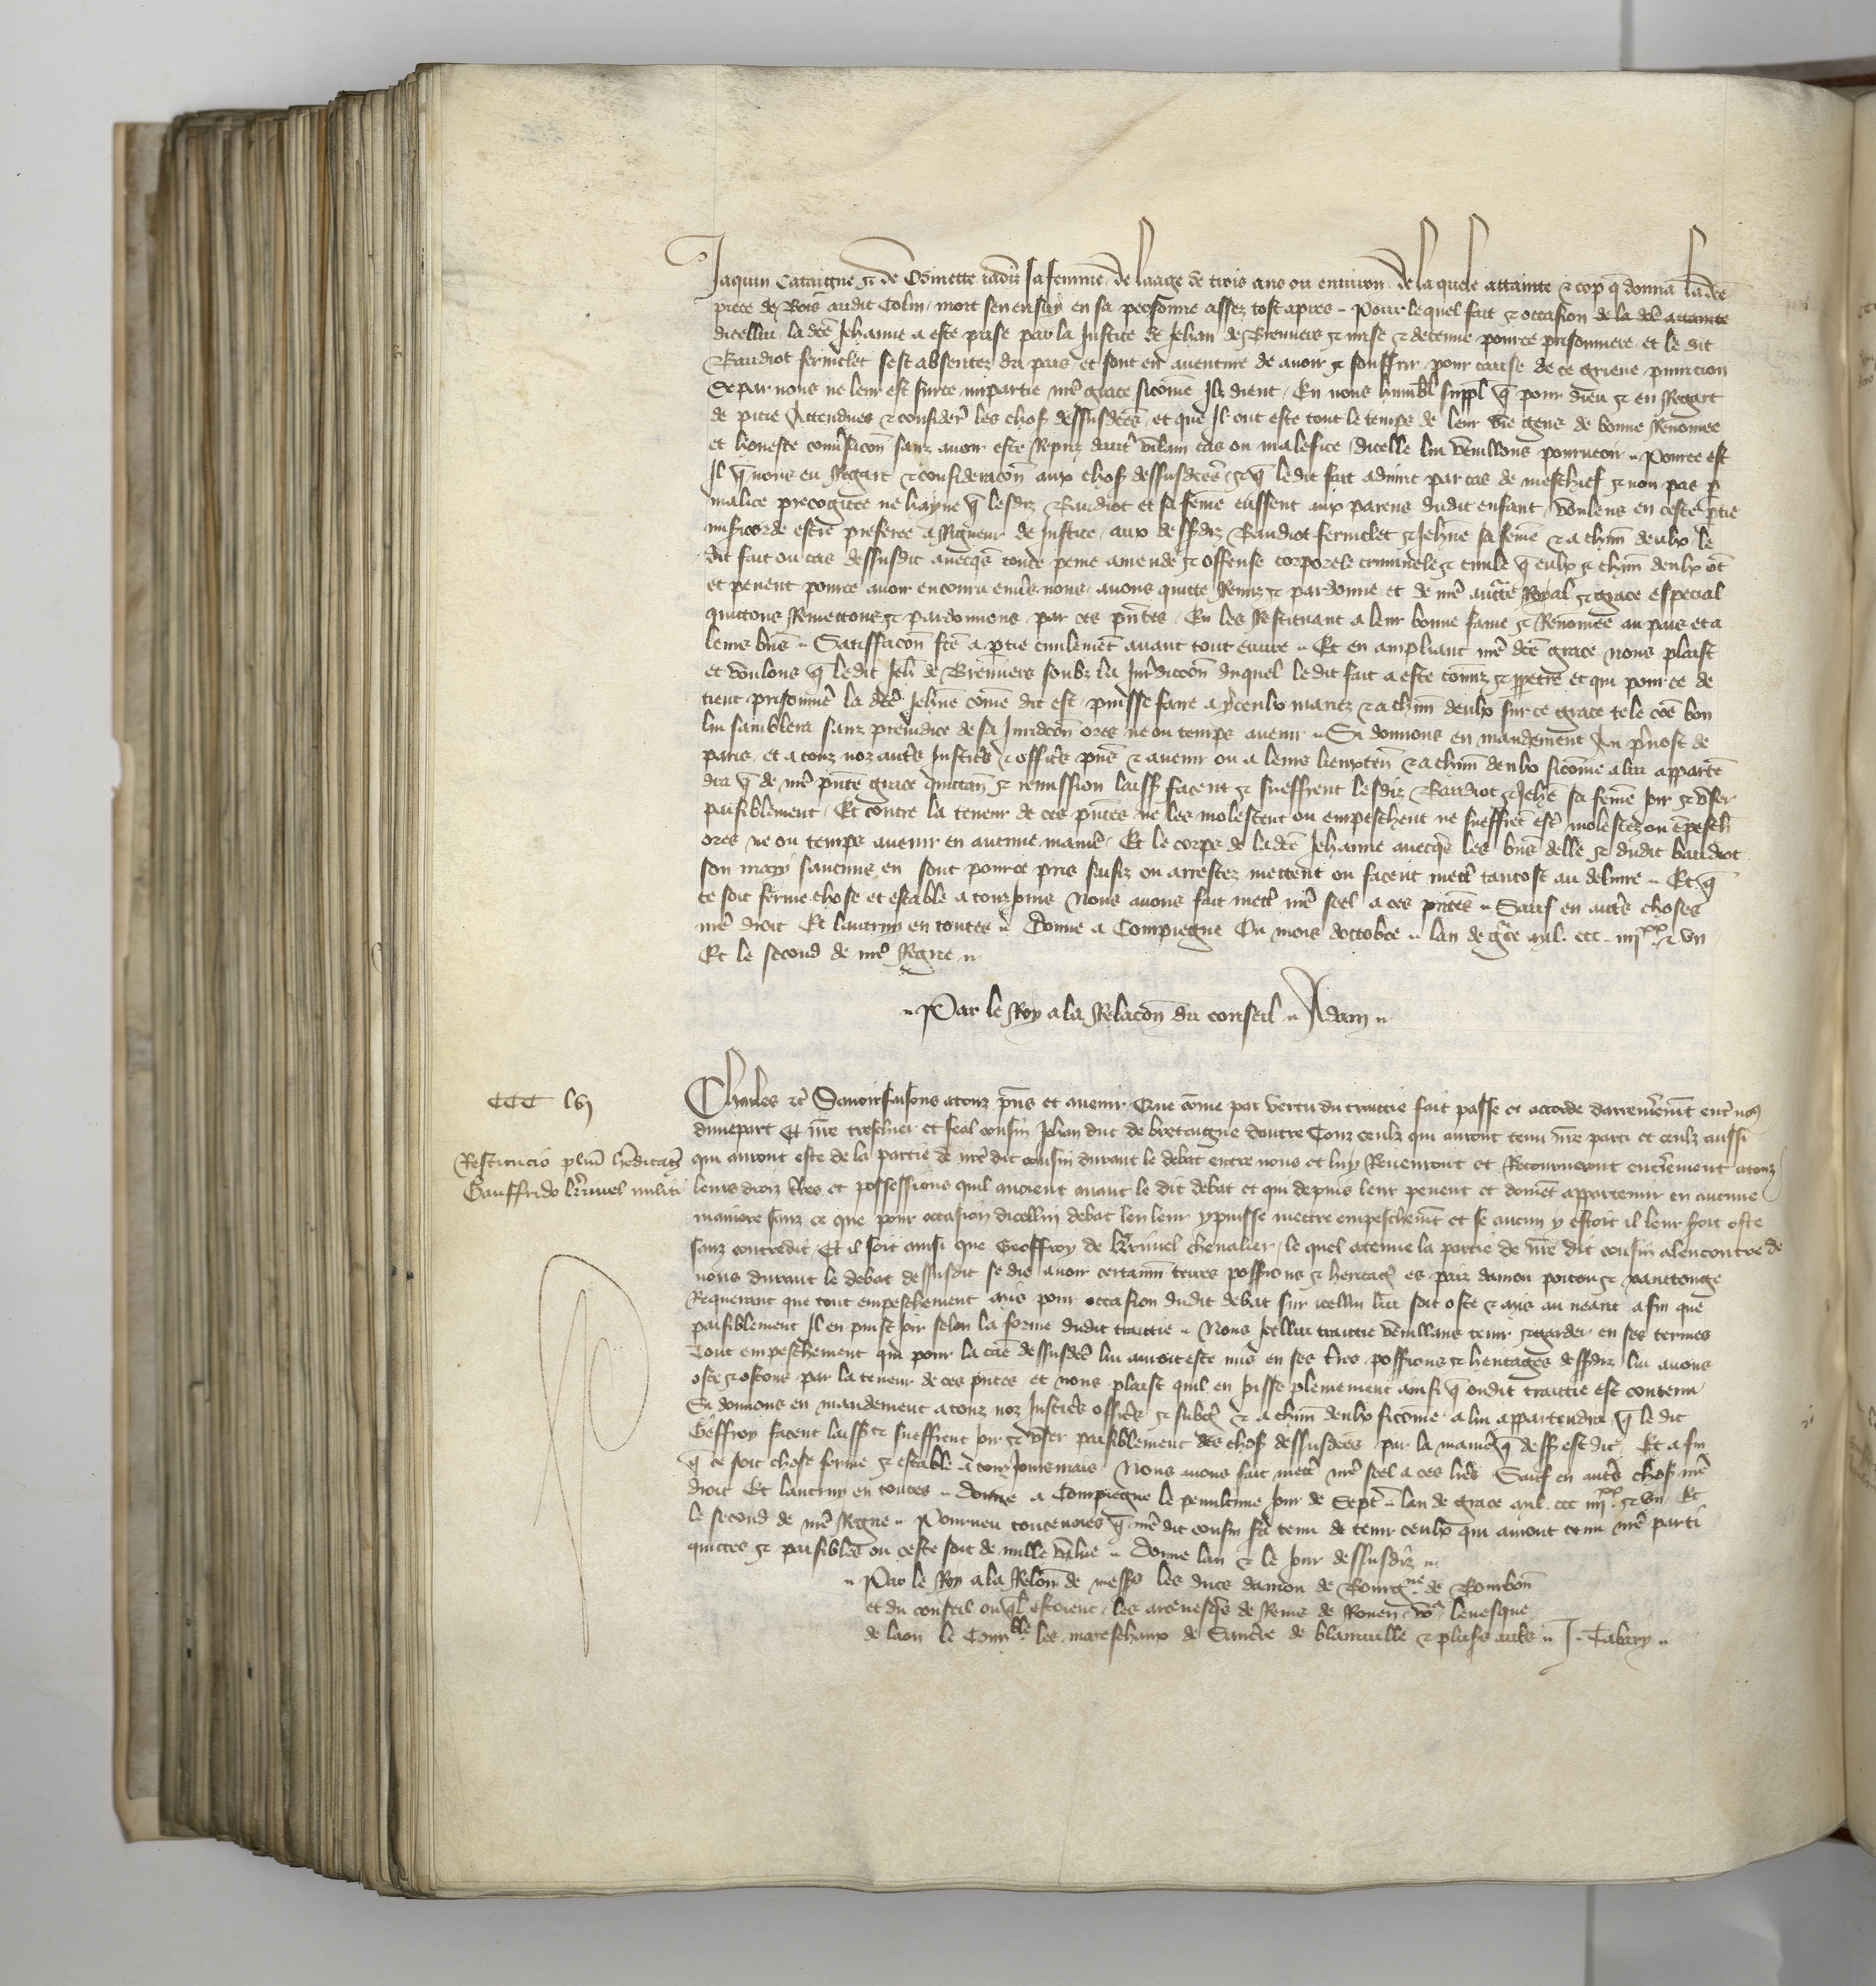 Jaquin Cataigne et de Omette jadis sa femme de laage de trois ans ou environ de laquele attainte et cop q̄ donna lad̄ce
piece de Bois audit Colin mort sen ensuy en sa personne assez tost apres Pour lequel fait et occasion de la d̄ce attainte
dicellui lad̄ce Jehanne a este prise par la Justice de Jehan de Breuviers et mise et detenue pource prisonniere et le dit
Baudiot fermelet sest absentez du pais et sont en aventure de avoir et souffrir pour cause de ce grieve punicion
Se par nous ne leur est surce impartie nr̄e grace sicōme Ilz dient En nous humbl̄ suppl̄ q̄ pour dieu et en Regart
de pitie Attendues et consider̄ les choses dessusd̄ces et que Il ont este tout le temps de leur vie gens de bonne Renomee
et honeste conv̄sacōn sanz avoir este Repriz daut̄ vilain cas ou malefice dicelle leur veuillons pourveoir Pource est
Il q̄ nous eu Regart et consideracōn aux choses dessusd̄ces et q̄ ledit fait advint par cas de meschief et non pas p̄
malice precogitee ne hayne q̄ lesdiz Baudiot et sa fēme eussent aux parens dudit enfant voulens en ceste p̄tie
mis̄icorde estre preferee a Rigueur de Justice aux dessusdiz Baudiot fermelet et Jeh̄ne sa fēme et a ch̄un deulx le
dit fait ou cas dessusdit avecq̄s toute peine amende et offense corporele criminele et civile q̄ eulx et ch̄un deulx ōt
et pevent pource avoir encouru env̄s nous avons quitte Remiz et pardonne et de nr̄e auct̄te Royal et grace especial
quittons Remettons et pardonnons par ces pn̄tes En les Restituant a leur bonne fame et Renōmee au pais et a
leurs biēs Satisfacōn fc̄e a p̄tie civilemēt avant tout euvre Et en ampliant nr̄e d̄ce grace nous plaist
et voulons q̄ ledit Jeh̄ de Breuviers soubz la Jur̄diccōn duquel ledit fait a este cōmis et p̄petre et qui pour ce de
tient prisonn̄e la d̄ce Jeh̄ne cōme dit est puisse faire a yceulx mariez et a ch̄un deulx sur ce grace tele cōe bon
lui samblera sanz preiudice de sa Juridicōn ores ne ou temps avenir Si donnons en mandement Au p̄vost de
paris et a touz noz aut̄s Justicīs et officīs pn̄s et avenir ou a leurs lieuxten̄ et a ch̄un deulx sicōme a lui apparten̄
dra q̄ de nr̄e pn̄te grace quittan̄ et remission laiss̄ facent et sueffrent lesdiz Baudiot et Jeh̄e sa fēme joir et user
paisiblement Et contre la teneur de ces pn̄tes ne les molestent ou empeschent ne sueffrēt est̄ molestez ou ēpeschez
ores ne ou temps avenir en aucune mani͂e Et le corps de lad̄ce Jehanne avecq̄s les biēs delle et dudit baudiot
son mary saucuns en sont pource pris saisiz ou arrestez mettent ou facent mett̄ tantost au delivre Et q̄
ce soit ferme chose et estable a touz jours Nous avons fait mett̄ nr̄e seel a ces pn̄tes Sauf en aut̄s choses
nr̄e droit Et lautruy en toutes Donne a Compiegne Ou mois doctobre lan de gr̄ce mil ccc iiijxx et un
Et le second de nr̄e Regne
Par le Roy a la Relacōn du conseil Adam
CCC lvj
Charles etc̄ Savoir faisons a touz pn̄s et avenir Que cōme par vertu du traittie fait passe et accorde darrenierem̄t entr̄ nous
dune part Et nr̄e treschier et feal cousin Jehan duc de bretaigne doutre Touz ceulz qui auront tenu nr̄e parti et ceulz aussi
Restitucio pluriū h̄editatū
qui auront este de la partie de nr̄e dit cousin durant le debat entre nous et luy Revenront et Retourneront entierement a touz
Gauffrido K̄rimel militi
leurs droiz t̄res et possessions quil avoient avant le dit debat et qui depuis leur pevent et doivēt appartenir en aucune
maniere sanz ce que pour occasion dicellui debat len leur y puisse mettre empeschem̄t et se aucun y estoit il leur soit oste
sanz contredit Et il soit ainsi que Geoffroy de K̄rimel chevalier le quel a tenue la partie de nr̄e dit cousin alencontre de
nous durant le debat dessusdit se die avoir certaines terres poss̄ions et heritaḡ es paiz danjou poitou et xanttonge
Requerant que tout empeschement mis pour occasion dudit debat sur icellui lui soit oste et mis au neant afin que
paisiblement Il en puist joir selon la forme dudit traittie Nous Icellui traittie veuillans tenir et garder en ses termes
Tout empeschement qui pour la cāe dessusd̄ce lui auroit este mis en ses t̄res poss̄ions et heritages dessusdiz lui avons
oste et ostons par la teneur de ces pn̄tes et nous plaist quil en joisse plainement ainsi q̄ oudit traittie est contenu
Si donnons en mandement a touz noz Justicīs officīs et subḡ et a ch̄un deulx sicōme a lui appartendra q̄ le dit
Geffroy facent laiss̄ et sueffrent joir et user paisiblement des choses dessusd̄ces par la mani͂e q̄ dess̄ est dit Et afin
q̄ ce soit chose ferme et estable a touz jours mais Nous avons fait mett̄ nr̄e seel a ces lr̄es Sauf en aut̄s choses nr̄e
droit Et lautruy en toutes Donne a Compiegne le penultime jour de Sept̄ lan de grace mil ccc iiijxx et un Et
le second de nr̄e Regne Pourveu toutevoies q̄ nr̄e dit cousin s̄a tenu de tenir ceulx qui auront tenu nr̄e parti
quittes et paisibles ou ceste soit de nulle value Donne lan et le jour dessusdiz
Par le Roy a la Relōn de mess̄s les ducs danjou de Bourgne de Bourbon
et du conseil ouq̄l estoient les arcevesq̄s de Reins de Rouen levesque
de laon le Connble les mareschaux de Sancerre de blainville et plus̄s aut̄s J. Tabary